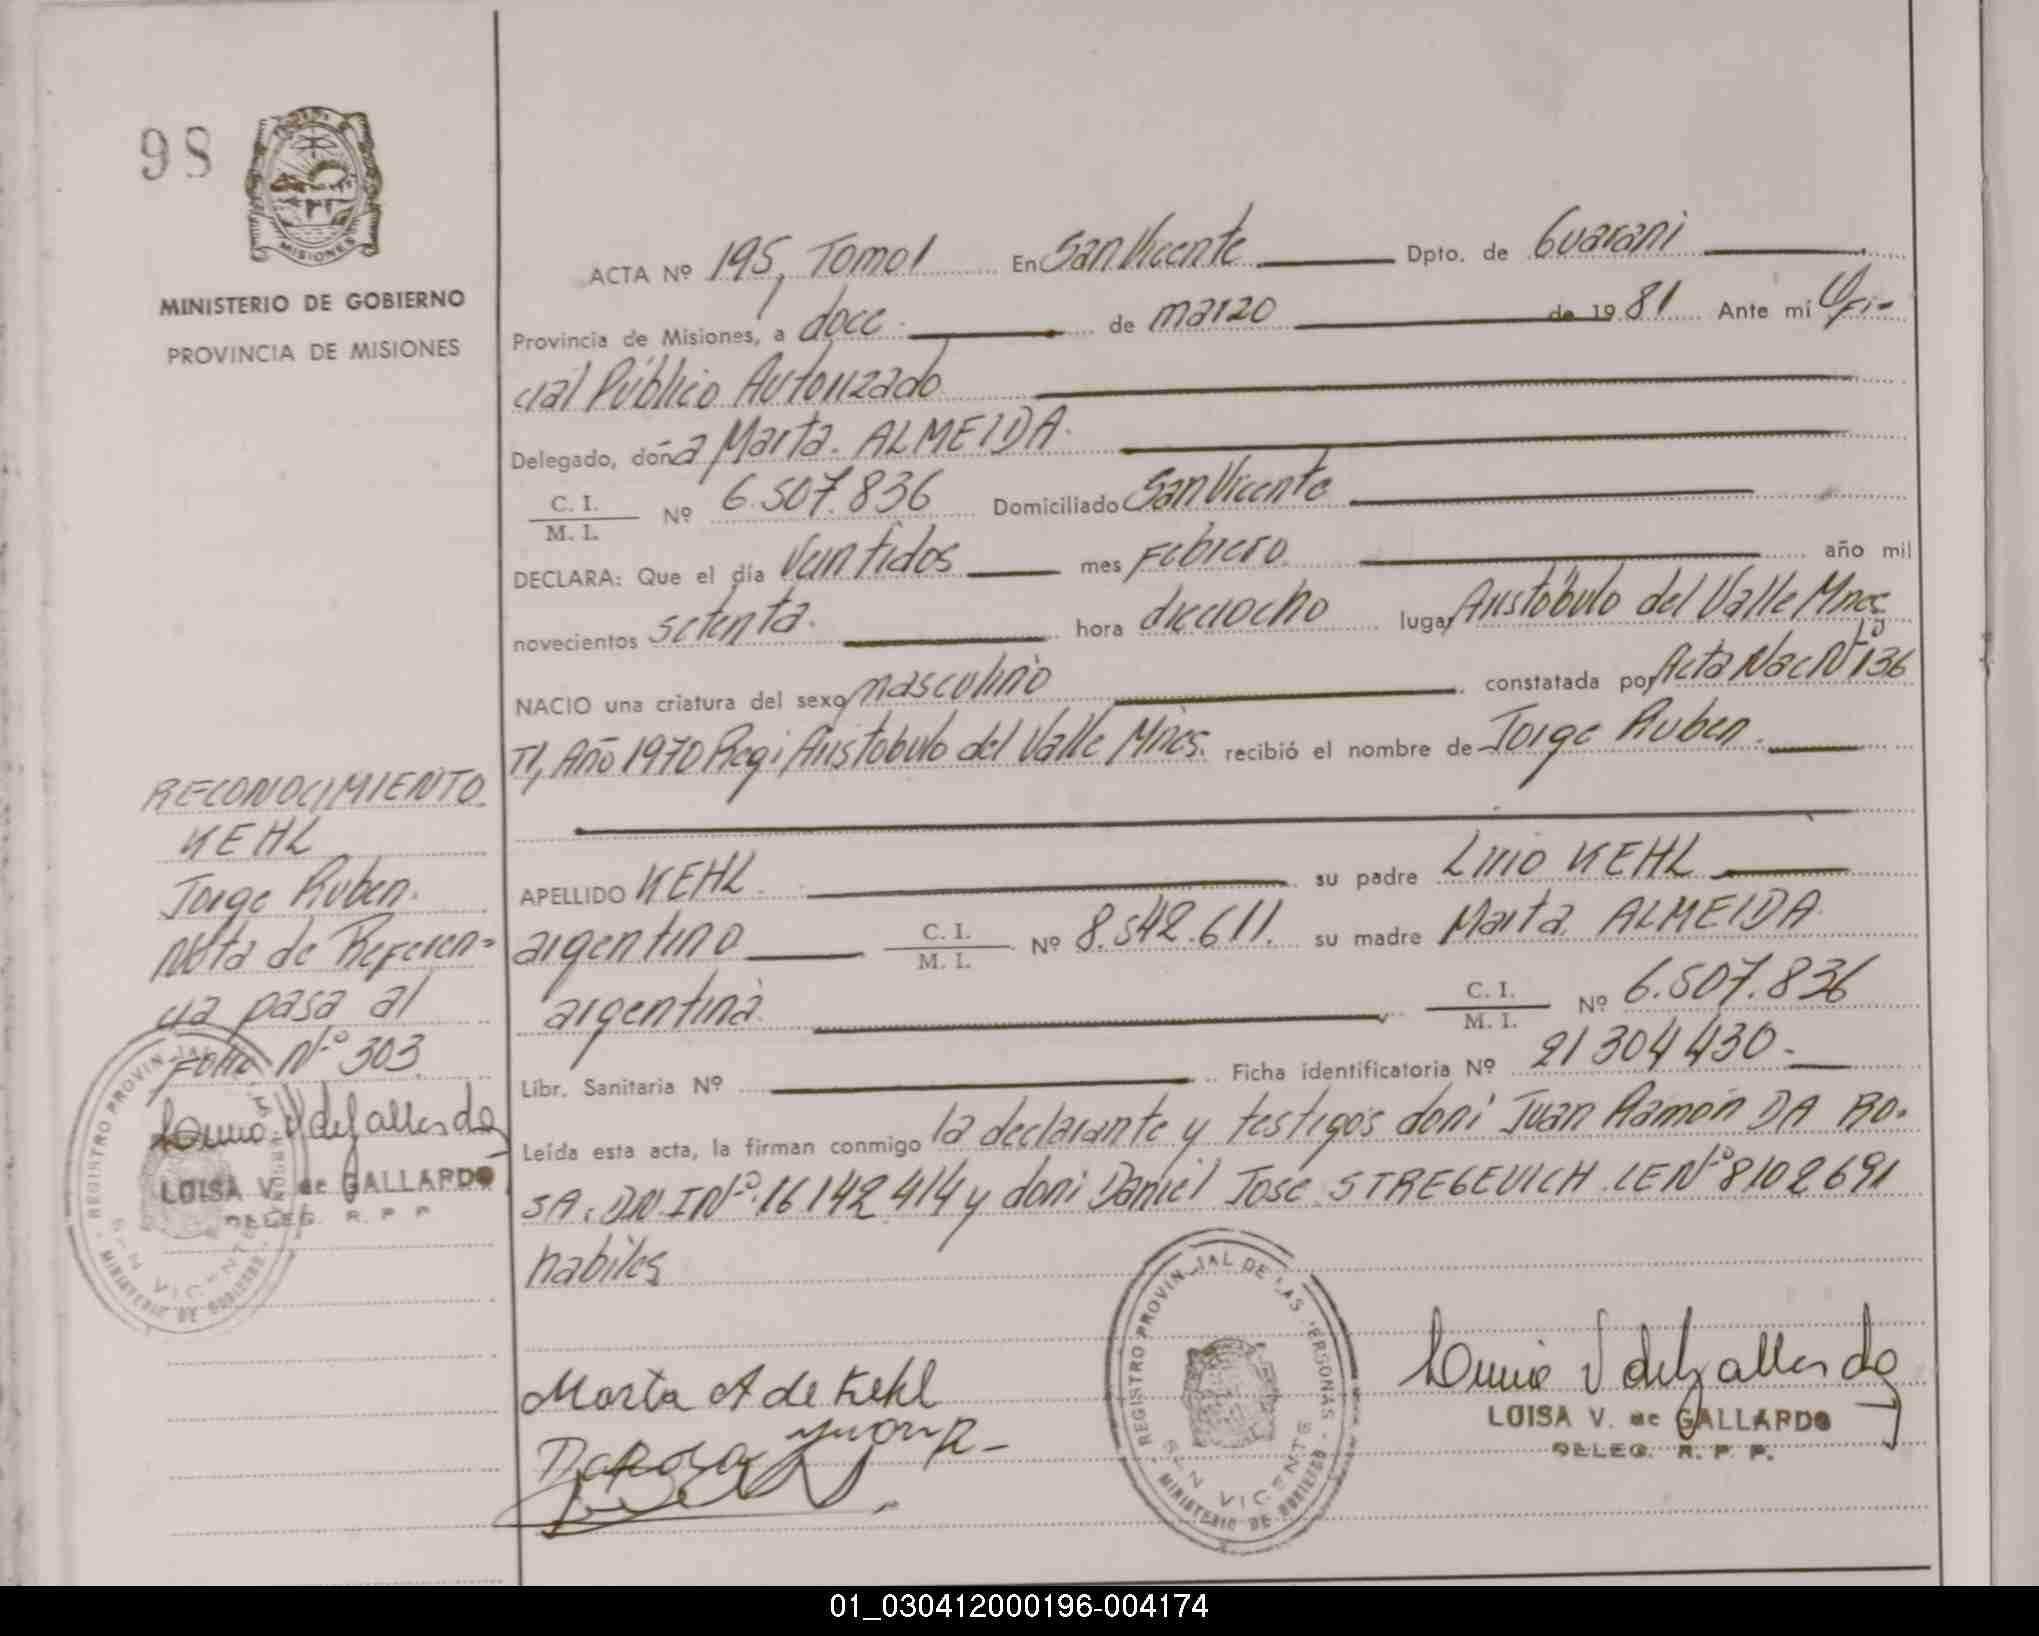 98
MISIONES
MINISTERIO DE GOBIERNO
PROVINCIA DE MISIONES
ACTA Nº 195, Tomo 1 En San Vicente Dpto. de Guarani
Provincia de Misiones, a doce de marzo de 1981 Ante mi Ofi-
cial Público Autorizado
Delegado, doña Marta. ALMEIDA.
C. I. / M. I. Nº 6.507.836 Domiciliado San Vicente
DECLARA: Que el día Veintidos mes Febrero. año mil
novecientos setenta. hora dieciocho lugar Aristóbulo del Valle Mnes.
NACIO una criatura del sexo masculino constatada por Acta Nac Nº 136
T1, Año 1970 Regi Aristobulo del Valle Mnes. recibió el nombre de Jorge Ruben.
APELLIDO KEHL. su padre Lirio KEHL
argentino C. I. / M. I. Nº 8.542.611. su madre Marta. ALMEIDA.
argentina C. I. / M. I. Nº 6.507.836
Libr. Sanitaria Nº Ficha identificatoria Nº 21304430-
Leída esta acta, la firman conmigo la declarante y testigos don: Juan Ramón DA RO-
SA. DNI Nº 16142414 y don: Daniel Jose STREGEVICH LE Nº 8102691
habiles
Marta A de Kehl
Da Rosa Juan R-
REGISTRO PROVINCIAL DE LAS PERSONAS
SAN VICENTE
MINISTERIO DE GOBIERNO
Luisa V de Gallardo
LUISA V. de GALLARDO
DELEG. R. P. P.
RECONOCIMIENTO.
KEHL
Jorge Ruben.
Nota de Referen-
cia pasa al
Folio Nº 303.
Luisa V de Gallardo
LUISA V. de GALLARDO
DELEG. R. P. P.
REGISTRO PROVINCIAL DE LAS PERSONAS
SAN VICENTE
MINISTERIO DE GOBIERNO
01_030412000196-004174